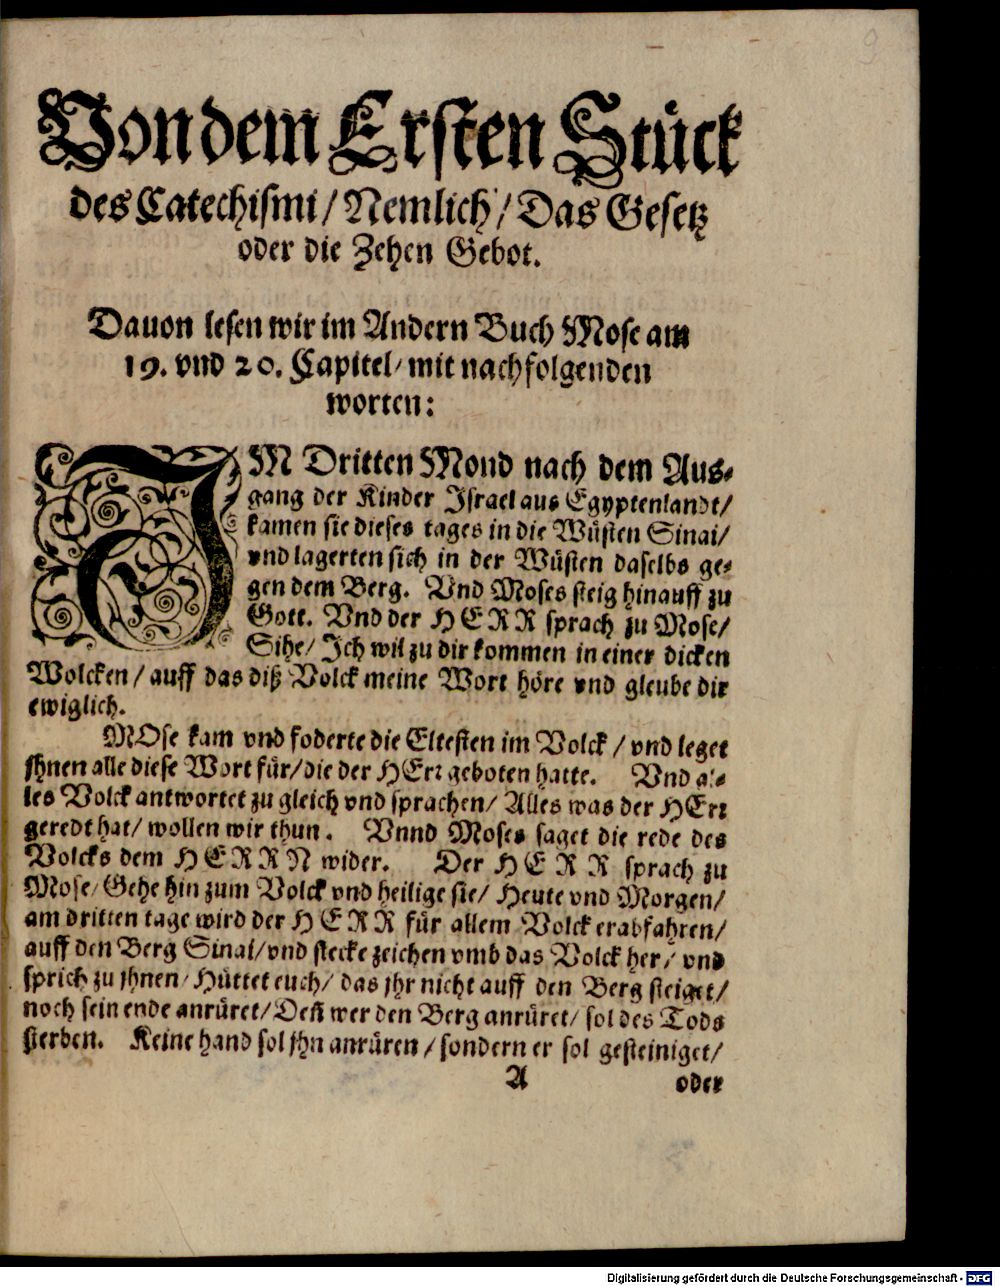 9
Von dem Ersten Stück
des Catechismi / Nemlich / Das Gesetz
oder die Zehen Gebot.
Dauon lesen wir im Andern Buch Mose am
19. vnd 20. Capitel / mit nachfolgenden
worten:
IM Dritten Mond nach dem Aus-
gang der Kinder Israel aus Egyptenlandt /
kamen sie dieses tages in die Wüsten Sinai /
vnd lagerten sich in der Wüsten daselbs ge-
gen dem Berg. Vnd Moses steig hinauff zu
Gott. Vnd der HERR sprach zu Mose /
Sihe / Ich wil zu dir kommen in einer dicken
Wolcken / auff das diß Volck meine Wort höre vnd gleube dir
ewiglich.
MOse kam vnd foderte die Eltesten im Volck / vnd leget
jhnen alle diese Wort für / die der HErr geboten hatte. Vnd al-
les Volck antwortet zu gleich vnd sprachen / Alles was der HErr
geredt hat / wollen wir thun. Vnnd Moses saget die rede des
Volcks dem HERRN wider. Der HERR sprach zu
Mose / Gehe hin zum Volck vnd heilige sie / Heute vnd Morgen /
am dritten tage wird der HERR für allem Volck erabfahren /
auff den Berg Sinai / vnd stecke zeichen vmb das Volck her / vnd
sprich zu jhnen / Hüttet euch / das jhr nicht auff den Berg steiget /
noch sein ende anrüret / Deñ wer den Berg anrüret / sol des Tods
sterben. Keine hand sol jhn anrüren / sondern er sol gesteiniget /
A oder
Digitalisierung gefördert durch die Deutsche Forschungsgemeinschaft - DFG